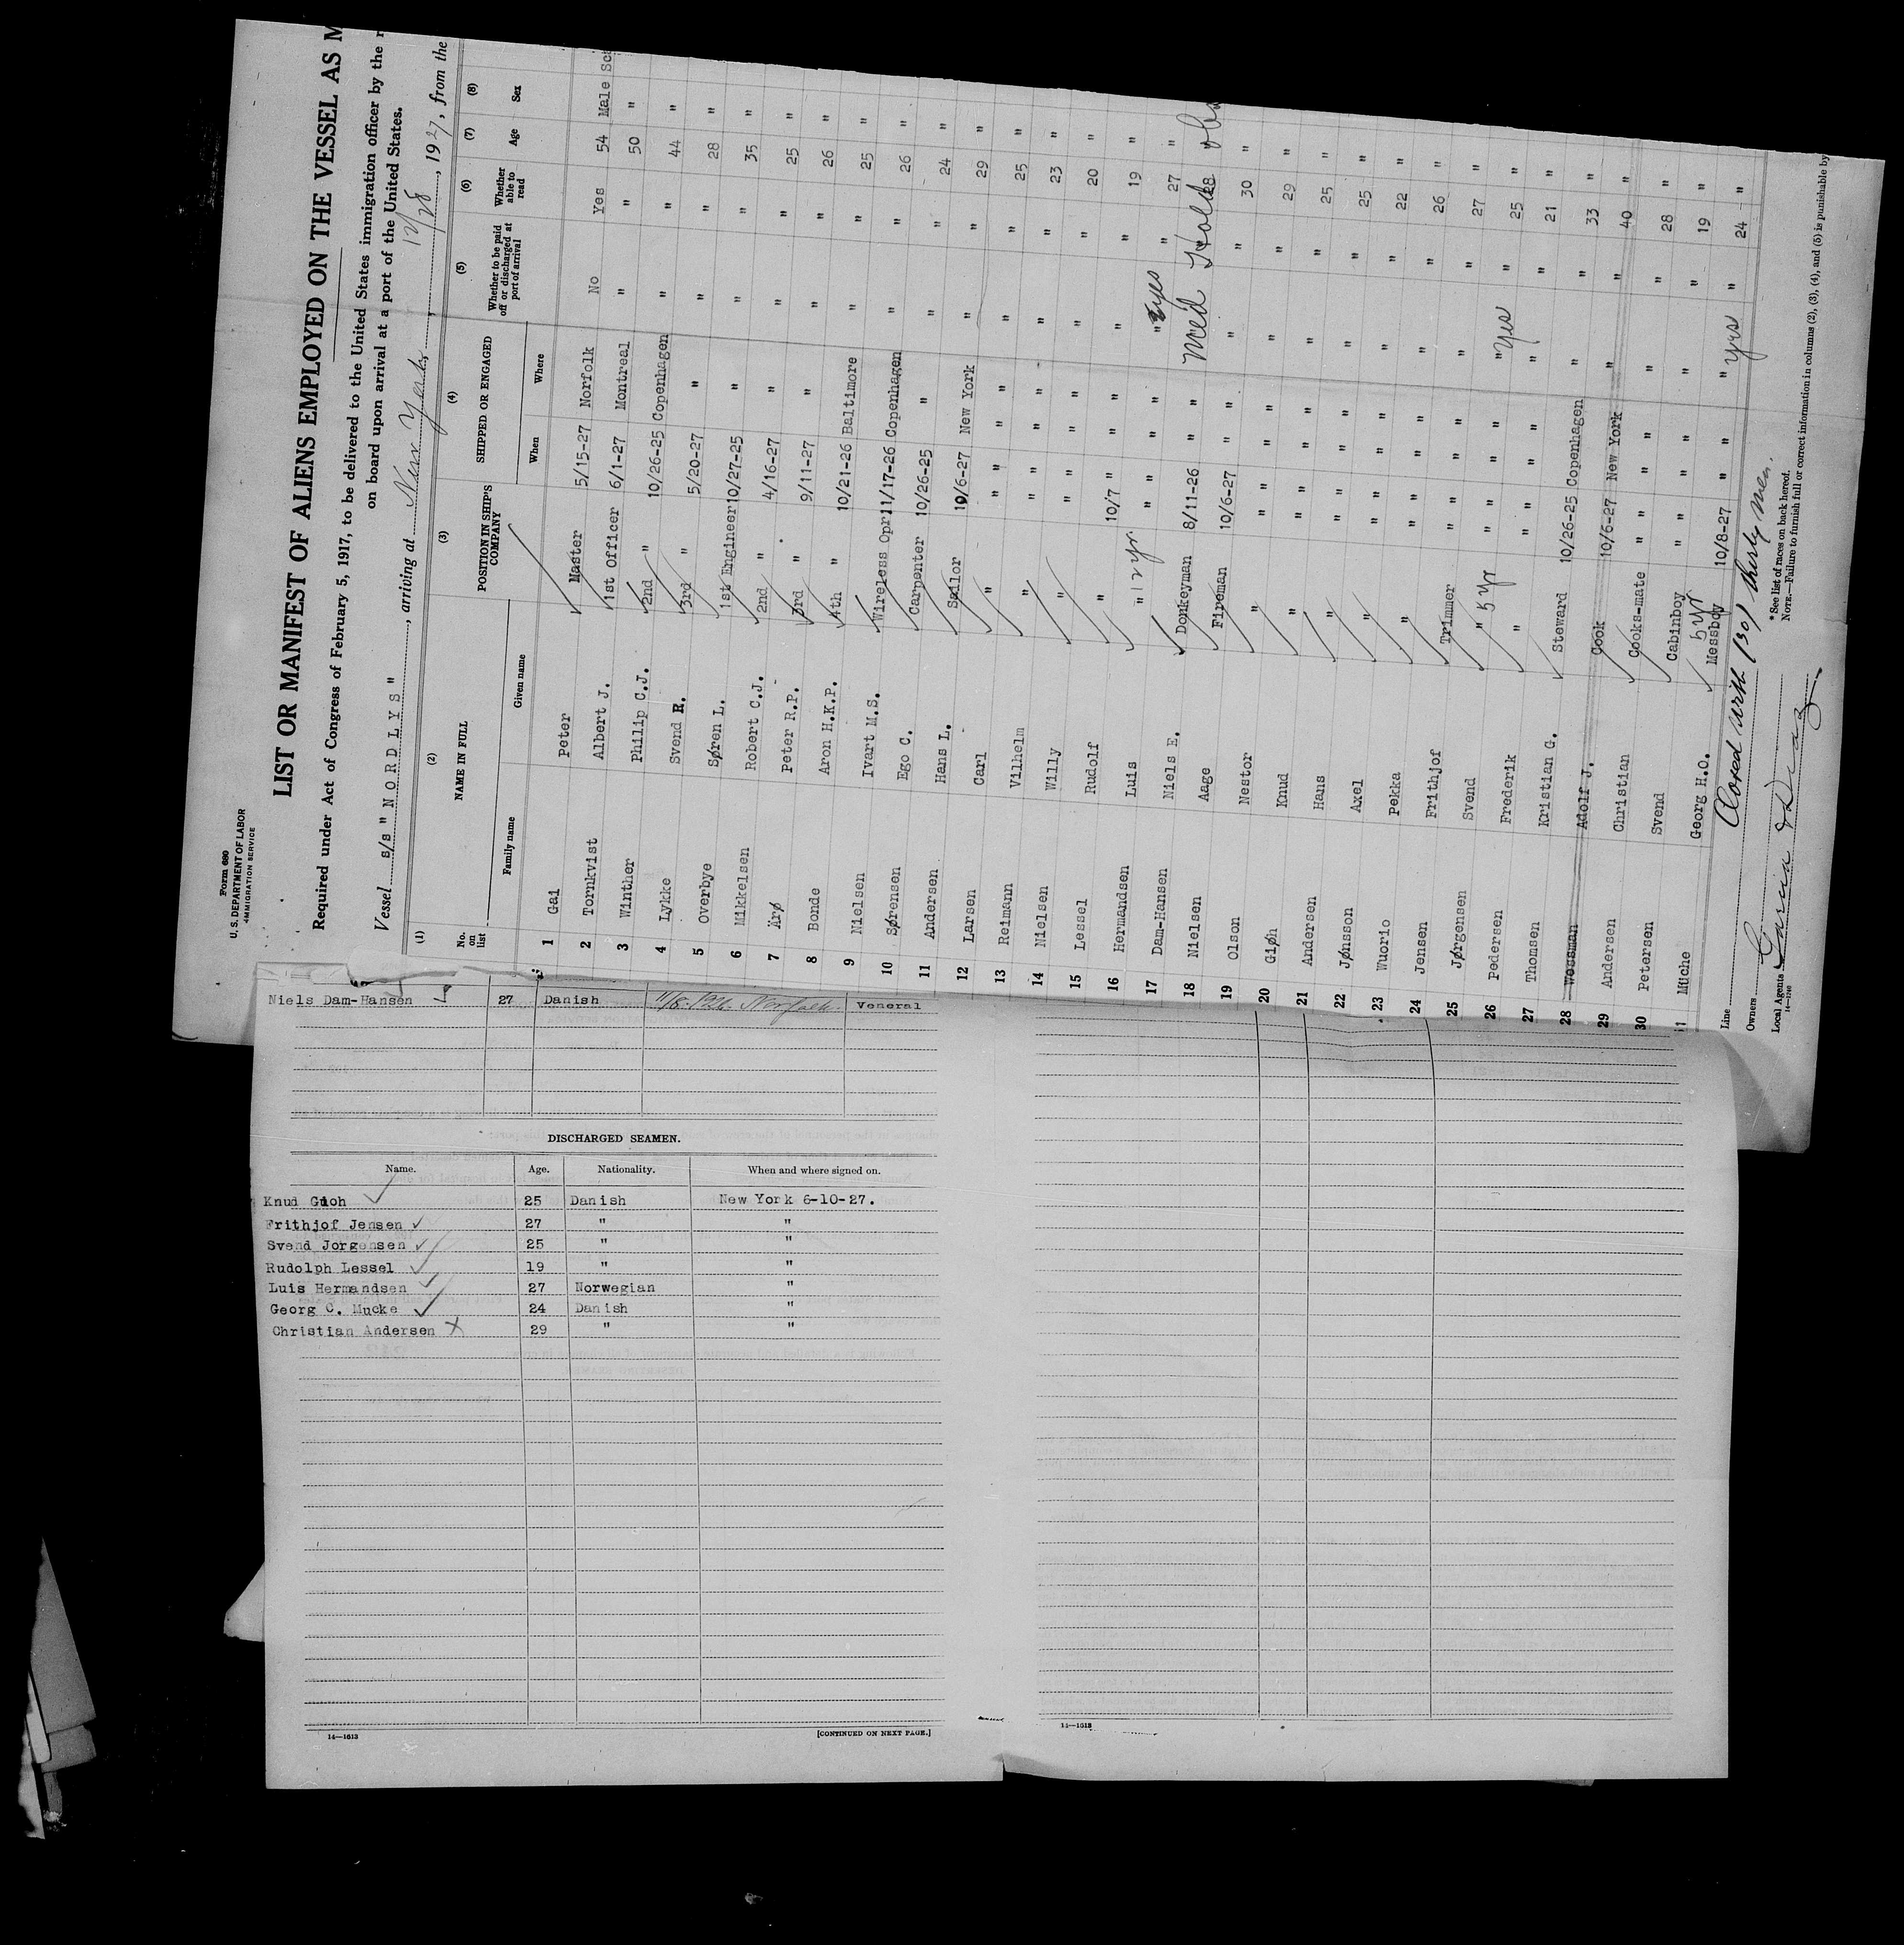 Form 680
U. S. DEPARTMENT OF LABOR
IMMIGRATION SERVICE
LIST OR MANIFEST OF ALIENS EMPLOYED ON THE VESSEL AS M
Required under Act of Congress of February 5, 1917, to be delivered to the United States immigration officer by the r
on board upon arrival at a port of the United States.
Vessel s/s " N O R D L Y S ", arriving at New York, 12/28, 1927, from the
(1) (2) (3) (4) (5) (6) (7) (8)
No. on list NAME IN FULL POSITION IN SHIP'S COMPANY SHIPPED OR ENGAGED Whether to be paid off or discharged at port of arrival Whether able to read Age Sex
Family name Given name When Where
1 Gal Peter Master 5/15-27 Norfolk No Yes 54 Male Sca
2 Tornkvist Albert J. 1st Officer 6/1-27 Montreal " " 50 "
3 Winther Philip C.J. 2nd " 10/26-25 Copenhagen " " 44 "
4 Lykke Svend R. 3rd " 5/20-27 " " " 28 "
5 Overbye Søren L. 1st Engineer 10/27-25 " " " 35 "
6 Mikkelsen Robert C.J. 2nd " 4/16-27 " " " 25 "
7 Ärø Peter R.P. 3rd " 9/11-27 " " " 26 "
8 Bonde Aron H.K.P. 4th " 10/21-26 Baltimore " " 25 "
9 Nielsen Ivart M.S. Wireless Opr 11/17-26 Copenhagen " " 26 "
10 Sørensen Ego C. Carpenter 10/26-25 " " " 24 "
11 Andersen Hans L. Sailor 10/6-27 New York " " 29 "
12 Larsen Carl " " " " " " 25 "
13 Reimann Vilhelm " " " " " " 23 "
14 Nielsen Willy " " " " " " 20 "
15 Lessel Rudolf " 10/7 " " " " 19 "
16 Hermandsen Luis " 12 yr. " " " yes " 27 "
17 Dam-Hansen Niels E. Donkeyman 8/11-26 " " Med Hold 28
18 Nielsen Aage Fireman 10/6-27 " " " " 30 "
19 Olson Nestor " " " " " " 29 "
20 Giøh Knud " " " " " " 25 "
21 Andersen Hans " " " " " " 25 "
22 Jønsson Axel " " " " " " 22 "
23 Wuorio Pekka " " " " " " 26 "
24 Jensen Frithjof Trimmer " " " " " 27 "
25 Jørgensen Svend " 5 yr " " " " Yes " 25 "
26 Pedersen Frederik " " " " " " 21 "
27 Thomsen Kristian G. Steward 10/26-25 Copenhagen " " 33 "
28 Wessman Adolf J. Cook 10/6-27 New York " " 40 "
29 Andersen Christian Cooks-mate " " " " 28 "
30 Petersen Svend Cabinboy " " " " 19 "
31 Müche Georg H.O. 5 yr Messboy 10/8-27 " " " yes " 24 "
Line Closed with (30) thirty men.
Owners
Local Agents Garcia & Diaz
14—1240
*See list of races on back hereof.
NOTE.—Failure to furnish full or correct information in columns (2), (3), (4), and (5) is punishable by
Niels Dam-Hansen 27 Danish 11/8-1926 Norfolk Veneral
DISCHARGED SEAMEN.
Name. Age. Nationality. When and where signed on.
Knud Gioh 25 Danish New York 6-10-27.
Frithjof Jensen 27 " "
Svend Jorgensen 25 " "
Rudolph Lessel 19 " "
Luis Hermandsen 27 Norwegian "
Georg C. Mucke 24 Danish "
Christian Andersen 29 " "
14—1613 [CONTINUED ON NEXT PAGE.]
14—1613